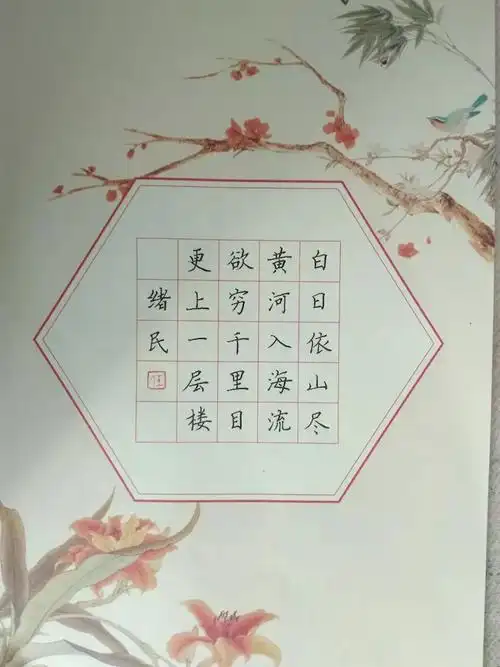 白日依山尽
黄河入海流
欲穷千里目
更上一层楼
绪民